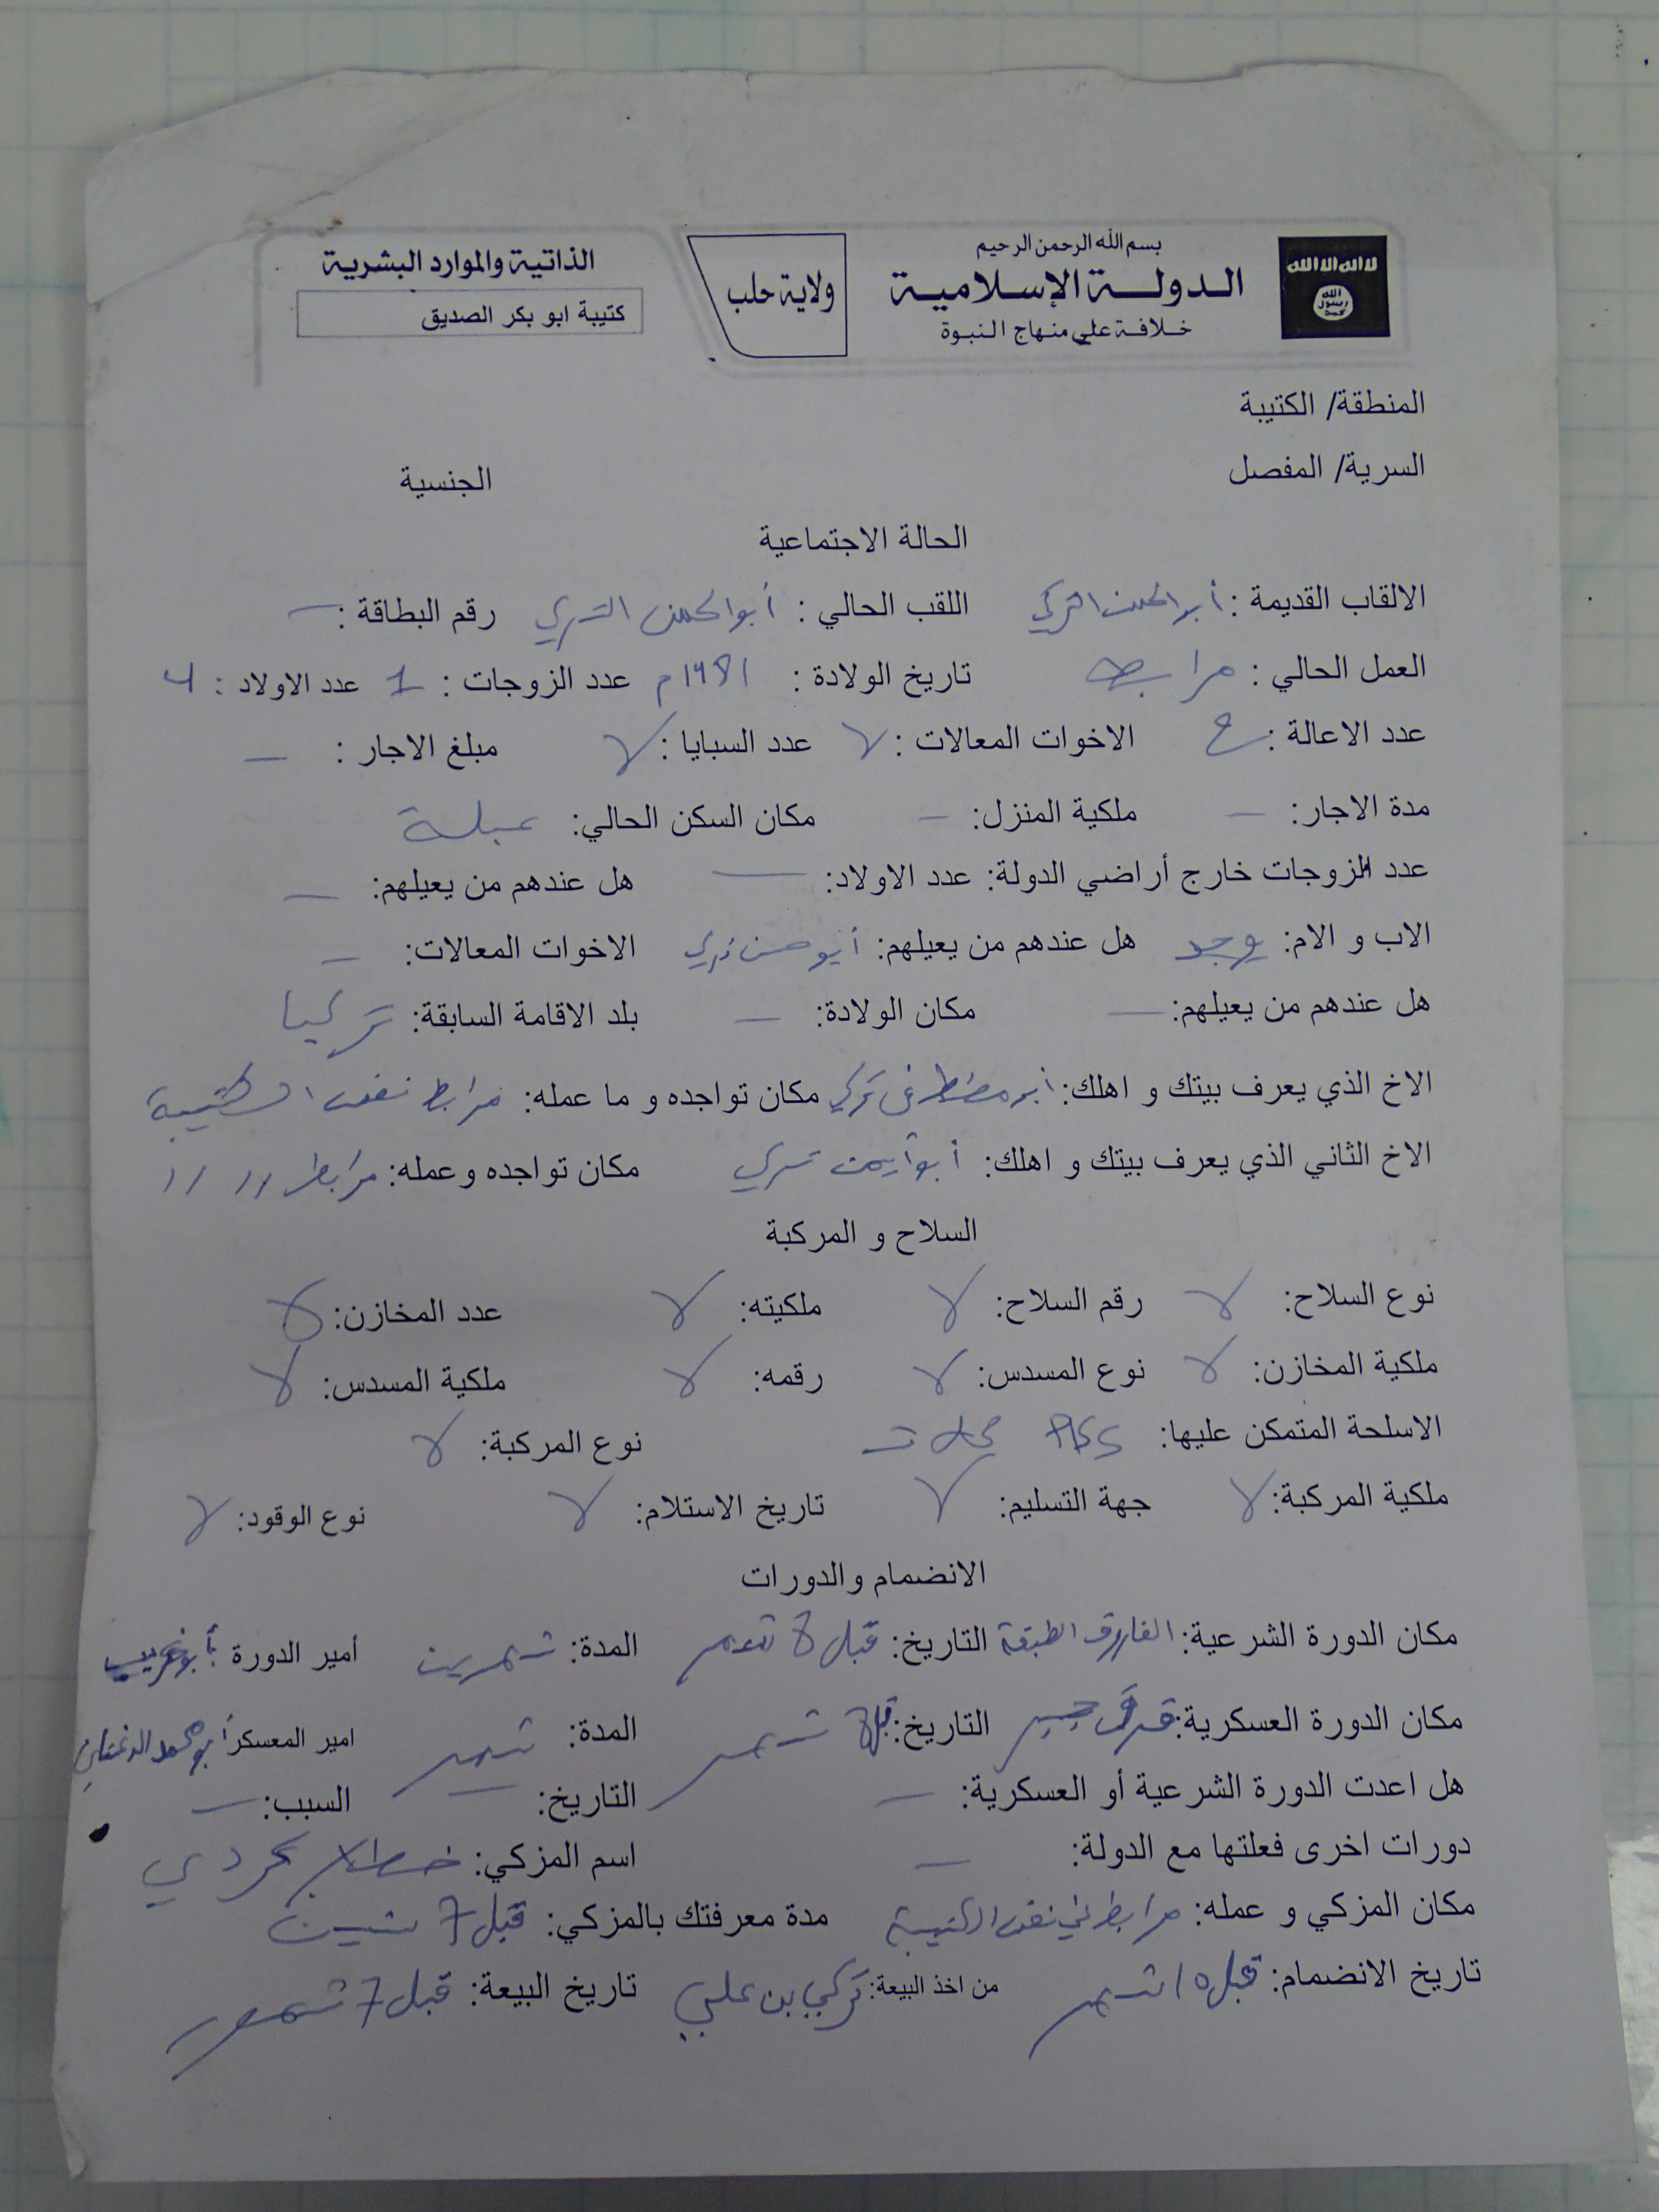 بسم الله الرحمن الرحيم
الدولة الإسلامية
خلافة على منهاج النبوة
ولاية حلب
الذاتية والموارد البشرية
كتيبة ابو بكر الصديق
لا اله الا الله
الله رسول محمد
المنطقة/ الكتيبة
السرية/ المفصل الجنسية
الحالة الاجتماعية
الالقاب القديمة : أبو الحسن التركي اللقب الحالي : أبو الحسن التركي رقم البطاقة : —
العمل الحالي : مرابط تاريخ الولادة : ١٩٨١ م عدد الزوجات : 1 عدد الاولاد : 4
عدد الاعالة : الاخوات المعالات : لا عدد السبايا : لا مبلغ الاجار : —
مدة الاجار: — ملكية المنزل: — مكان السكن الحالي: عبلة
عدد الزوجات خارج أراضي الدولة: عدد الاولاد: — هل عندهم من يعيلهم: —
الاب و الام: يوجد هل عندهم من يعيلهم: أبو حسن تركي الاخوات المعالات: —
هل عندهم من يعيلهم: — مكان الولادة: — بلد الاقامة السابقة: تركيا
الاخ الذي يعرف بيتك و اهلك: أبو مصطفى تركي مكان تواجده و ما عمله: مرابط نفس الكتيبة
الاخ الثاني الذي يعرف بيتك و اهلك: أبو أيمن تركي مكان تواجده وعمله: مرابط // //
السلاح و المركبة
نوع السلاح: لا رقم السلاح: لا ملكيته: لا عدد المخازن: لا
ملكية المخازن: لا نوع المسدس: لا رقمه: لا ملكية المسدس: لا
الاسلحة المتمكن عليها: نوع المركبة: لا
ملكية المركبة: لا جهة التسليم: لا تاريخ الاستلام: لا نوع الوقود: لا
الانضمام والدورات
مكان الدورة الشرعية: الفاروق الطبقة التاريخ: قبل ٨ شهر المدة: شهرين أمير الدورة :
مكان الدورة العسكرية: التاريخ: شهر المدة: شهر امير المعسكر أبو محمد
هل اعدت الدورة الشرعية أو العسكرية: — التاريخ: — السبب: —
دورات اخرى فعلتها مع الدولة: — اسم المزكي: خطاب كردي
مكان المزكي و عمله: مرابط في نفس الكتيبة مدة معرفتك بالمزكي: قبل
تاريخ الانضمام: قبل ١٥ شهر من اخذ البيعة: تركي بن علي تاريخ البيعة: قبل